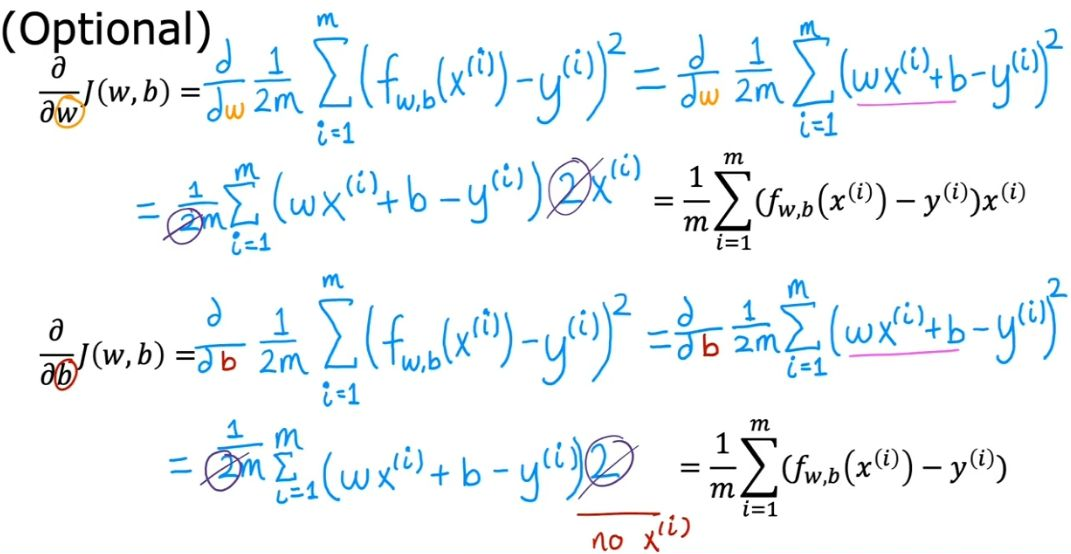 (Optional)
∂/∂w J(w, b) = d/dw 1/2m Σ_{i=1}^{m} (f_{w,b}(x^{(i)}) - y^{(i)})² = d/dw 1/2m Σ_{i=1}^{m} (wx^{(i)} + b - y^{(i)})²
= 1/2m Σ_{i=1}^{m} (wx^{(i)} + b - y^{(i)}) 2x^{(i)} = 1/m Σ_{i=1}^{m} (f_{w,b}(x^{(i)}) − y^{(i)})x^{(i)}
∂/∂b J(w, b) = ∂/∂b 1/2m Σ_{i=1}^{m} (f_{w,b}(x^{(i)}) - y^{(i)})² = ∂/∂b 1/2m Σ_{i=1}^{m} (wx^{(i)} + b - y^{(i)})²
= 1/2m Σ_{i=1}^{m} (wx^{(i)} + b - y^{(i)}) 2 = 1/m Σ_{i=1}^{m} (f_{w,b}(x^{(i)}) − y^{(i)})
no x^{(i)}